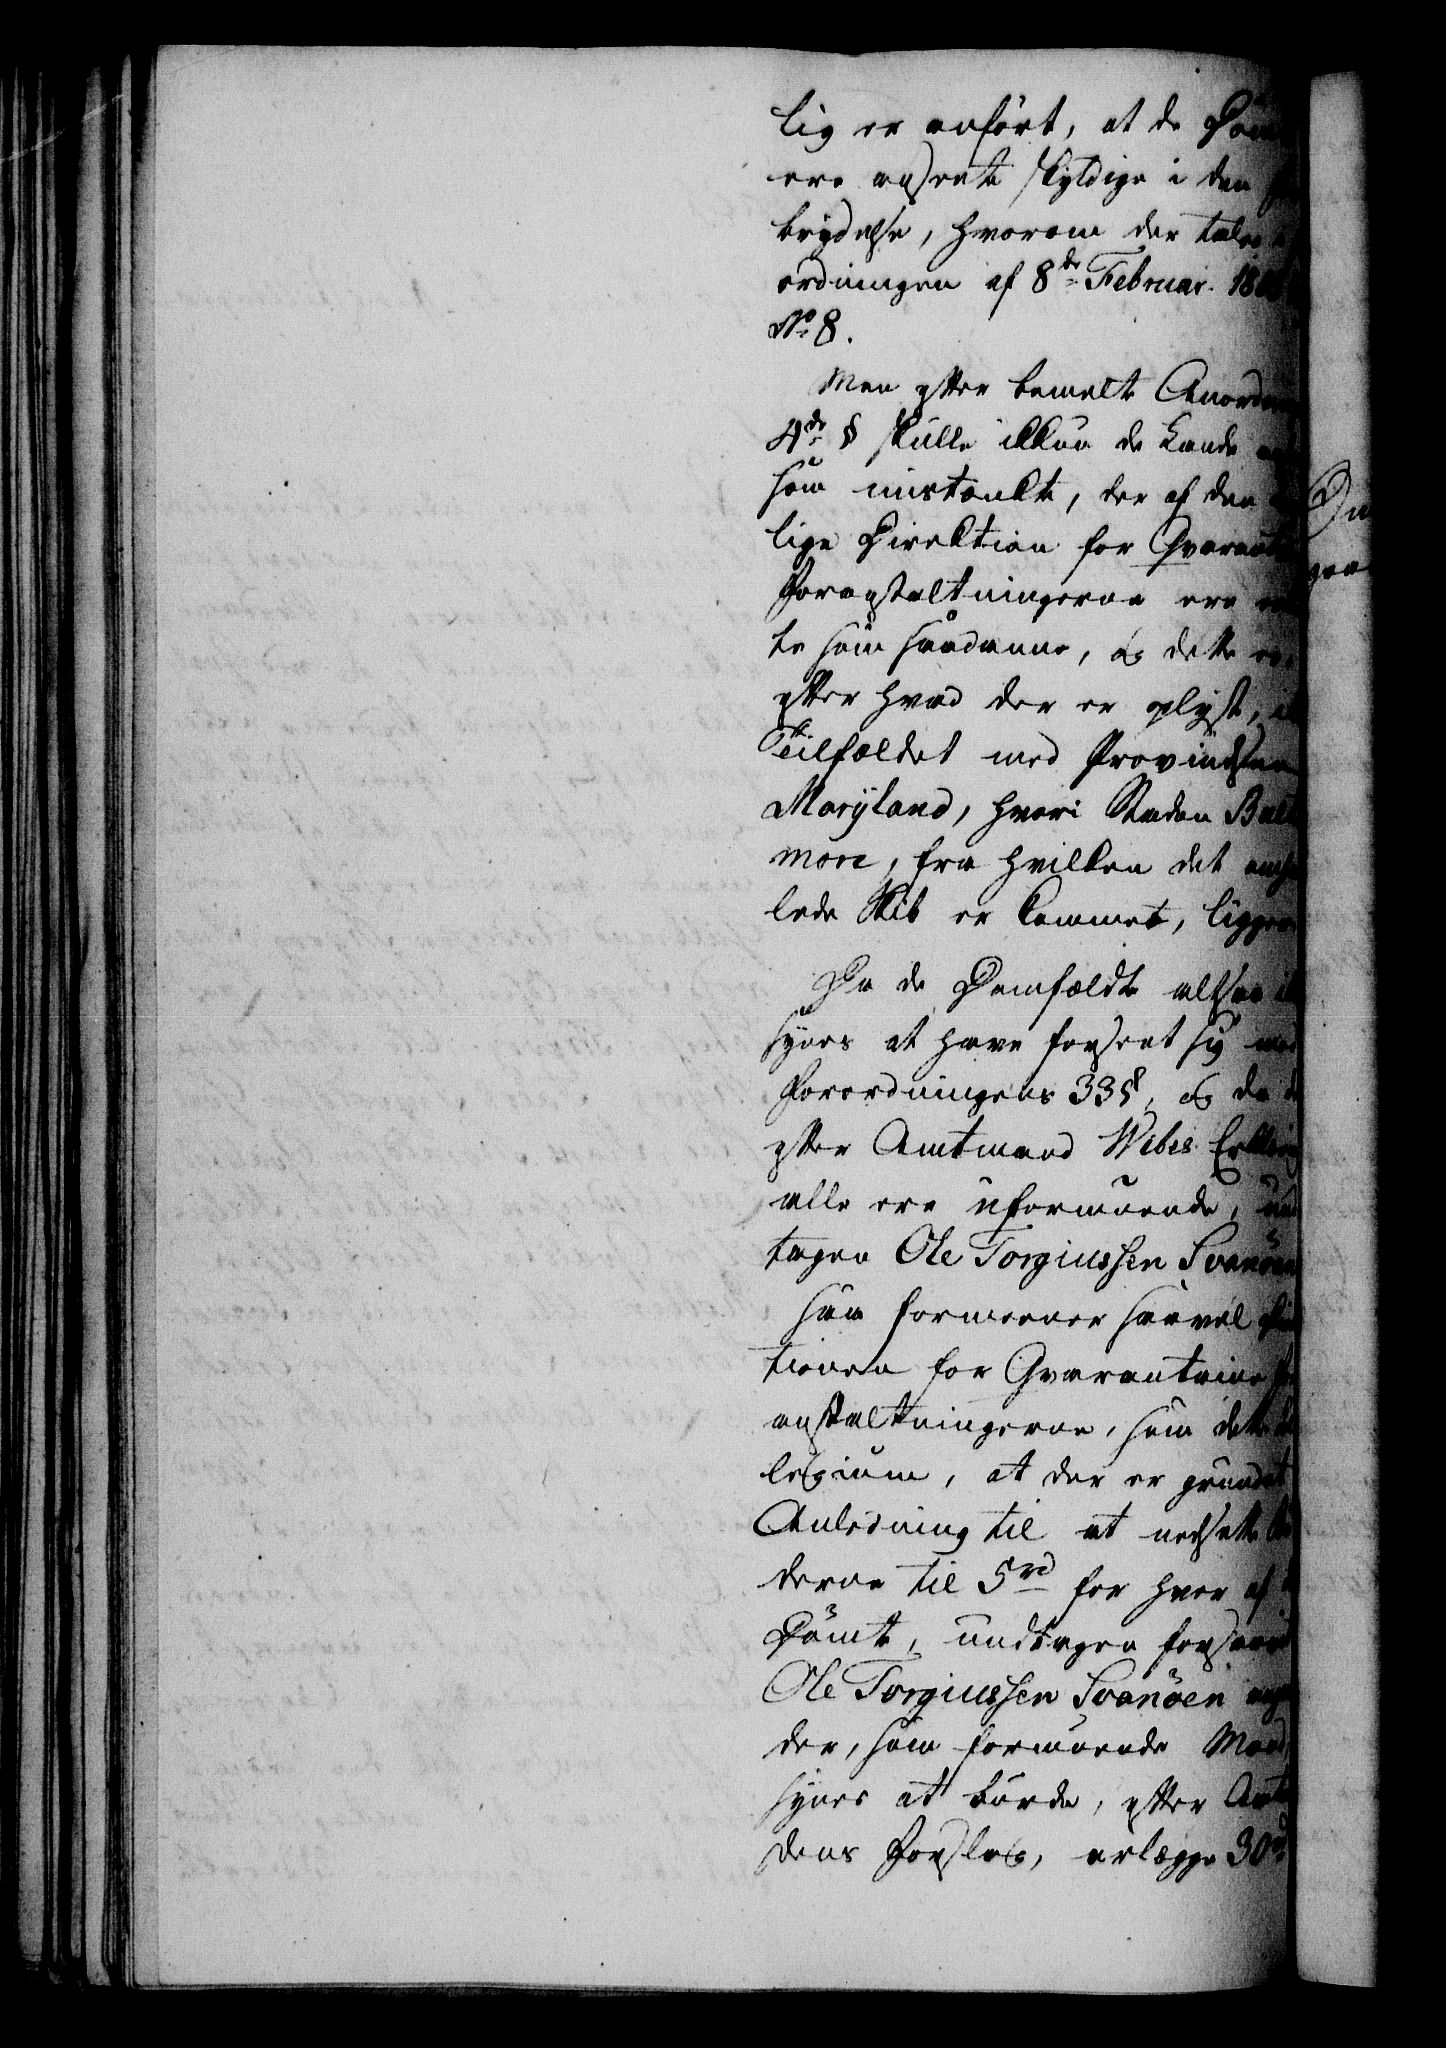 lig er anført, at de Døm
ere ansete skyldige i den
brydelse, hvorom der tales
ordningen af 8de Februar. 18
No 8.
Men efter bemelte Anordn
4de § skulle ikkun de Lande
som mistænkte, der af den
lige Direktion for Qvarant
Foranstaltningerne ere
te som saadanne, og dette er,
efter hvad der er oplyst, i
Tilfældet med Provindsen
Maryland, hvori Staden Balt
more, fra hvilken det om
lede Skib er kommet, ligger
Da de Domfældte altsaa
synes at have forseet sig mod
Forordningens 33 §, og da d
efter Amtmand Wibes Erklæring
alle ere uformuende, und
tagen Ole Torgiussen Svanöen
saa formeener saavel Di
tionen for Qvarantaine
anstaltningerne, som dette
legium, at der er grundet
Anledning til at nedsætte
derne til 5 rd for hver af
Dömte, undtagen forsaavidt
Ole Torgiussen Svanöen
der, som formuende Mand,
synes at burde, efter Amt
dens Forslag, erlægge 30 rd